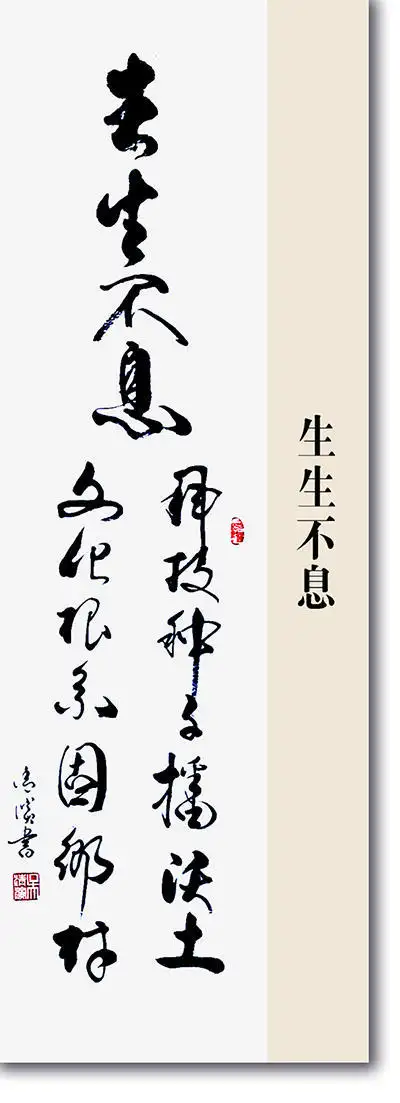 生生不息
生生不息
科技种子播沃土
文化根系固乡村
书